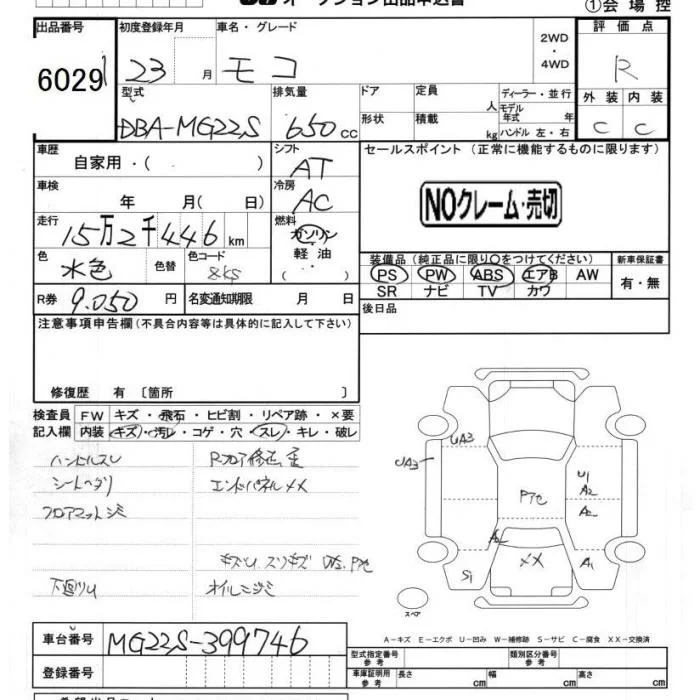 オークション出品申込書
①会場控
出品番号
6029
初度登録年月
23 月
車名・グレード
モコ
2WD
・
4WD
評価点
R
外装 内装
C C
型式
DBA-MG22S
排気量
650 cc
ドア
形状
定員 人
積載 kg
ディーラー・並行
モデル年式 年
ハンドル 左・右
車歴
自家用・( )
シフト
AT
セールスポイント (正常に機能するものに限ります)
NOクレーム・売切
車検
年 月( 日)
冷房
AC
走行
15万2千446 km
燃料
ガソリン
軽油
( )
色
水色
色替
色コード
装備品 (純正品に限り○をつけてください)
PS PW ABS エアB AW
SR ナビ TV カワ
新車保証書
有・無
R券
9.050 円
名変通知期限 月 日
後日品
注意事項申告欄(不具合内容等は具体的に記入して下さい)
修復歴 有 〔箇所 〕
検査員
記入欄
FW キズ・飛石・ヒビ割・リペア跡・×要
内装 キズ・汚レ・コゲ・穴・スレ・キレ・破レ
ハンドルスレ
シートヘタリ
フロアマットジミ
下廻りU
Rフロア修正歪
エンドパネルメメ
キズU スリキズ
オイルニジミ
UA3
UA3
U1
A2
A2
S1
A1
メメ
スペア
A-キズ E-エクボ U-凹み W-補修跡 S-サビ C-腐食 XX-交換済
車台番号
MG22S-399746
登録番号
型式指定番号
参考
類別区分番号
参考
車庫証明用
参考
長さ cm
幅 cm
高さ cm